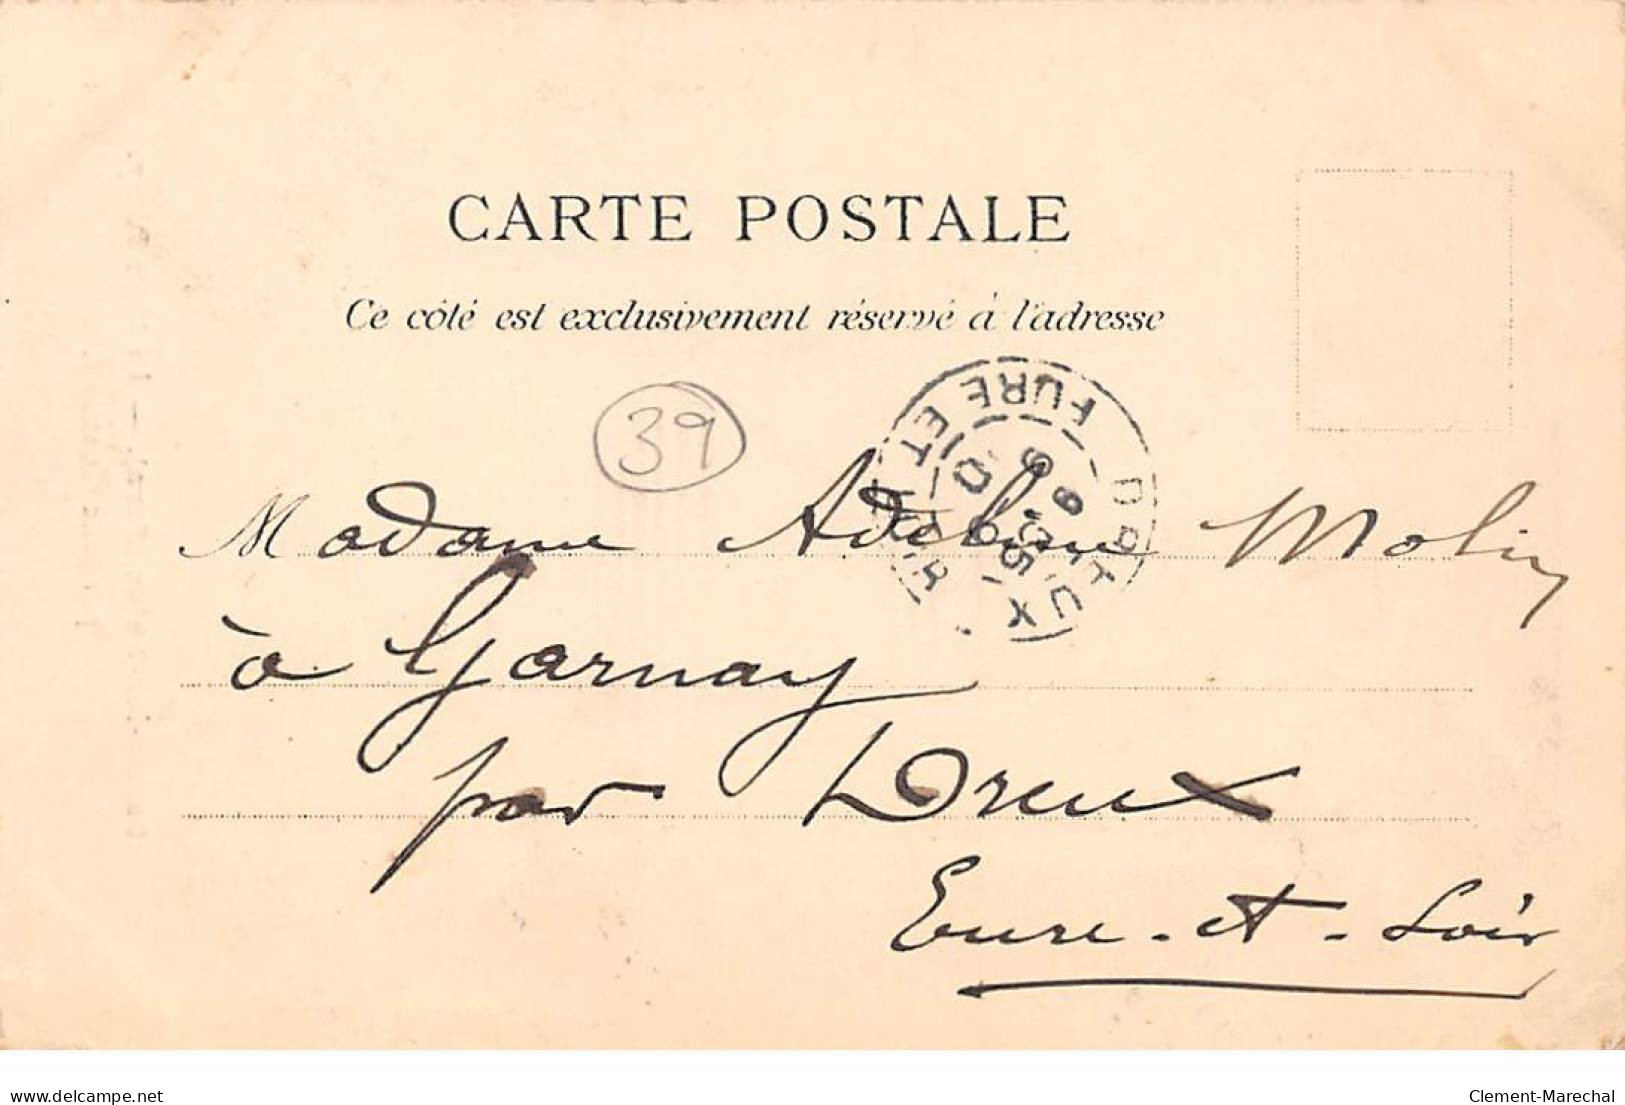 CARTE POSTALE
Ce côté est exclusivement réservé à l'adresse
39
DREUX EURE ET LOIR
Madame Adeline Molin
à Garnay
par Dreux
Eure-et-Loir
delcampe.net
Clement-Marechal